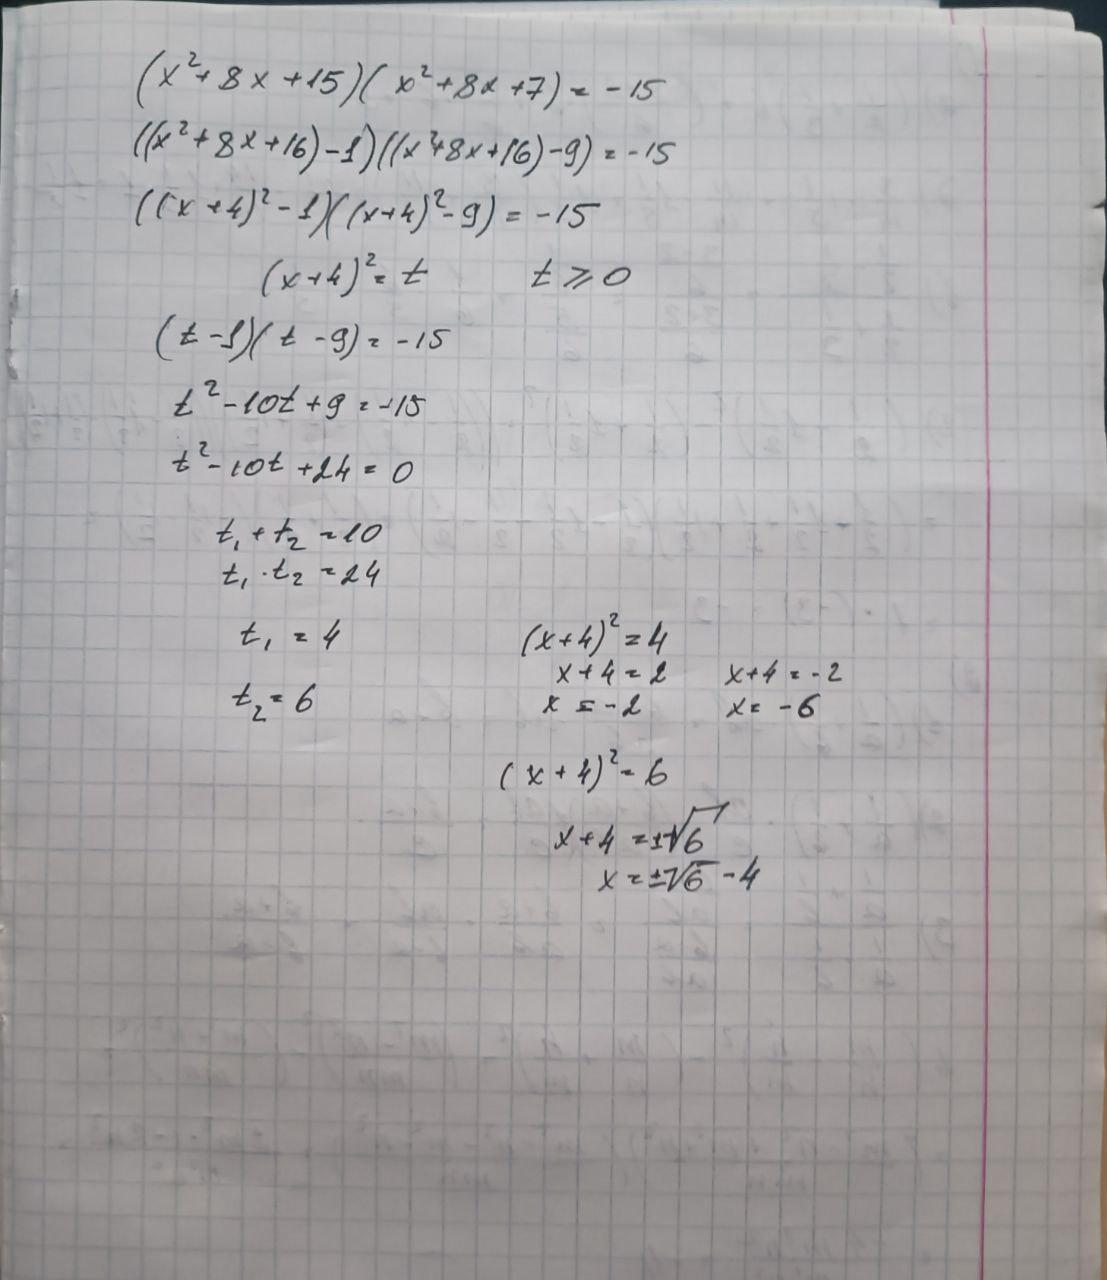 (x²+8x+15)(x²+8x+7)=-15
((x²+8x+16)-1)((x²+8x+16)-9)=-15
((x+4)²-1)((x+4)²-9)=-15
(x+4)²=t t⩾0
(t-1)(t-9)=-15
t²-10t+9=-15
t²-10t+24=0
t₁+t₂=10
t₁·t₂=24
t₁=4 (x+4)²=4
x+4=2 x+4=-2
t₂=6 x=-2 x=-6
(x+4)²=6
x+4=±√6
x=±√6-4